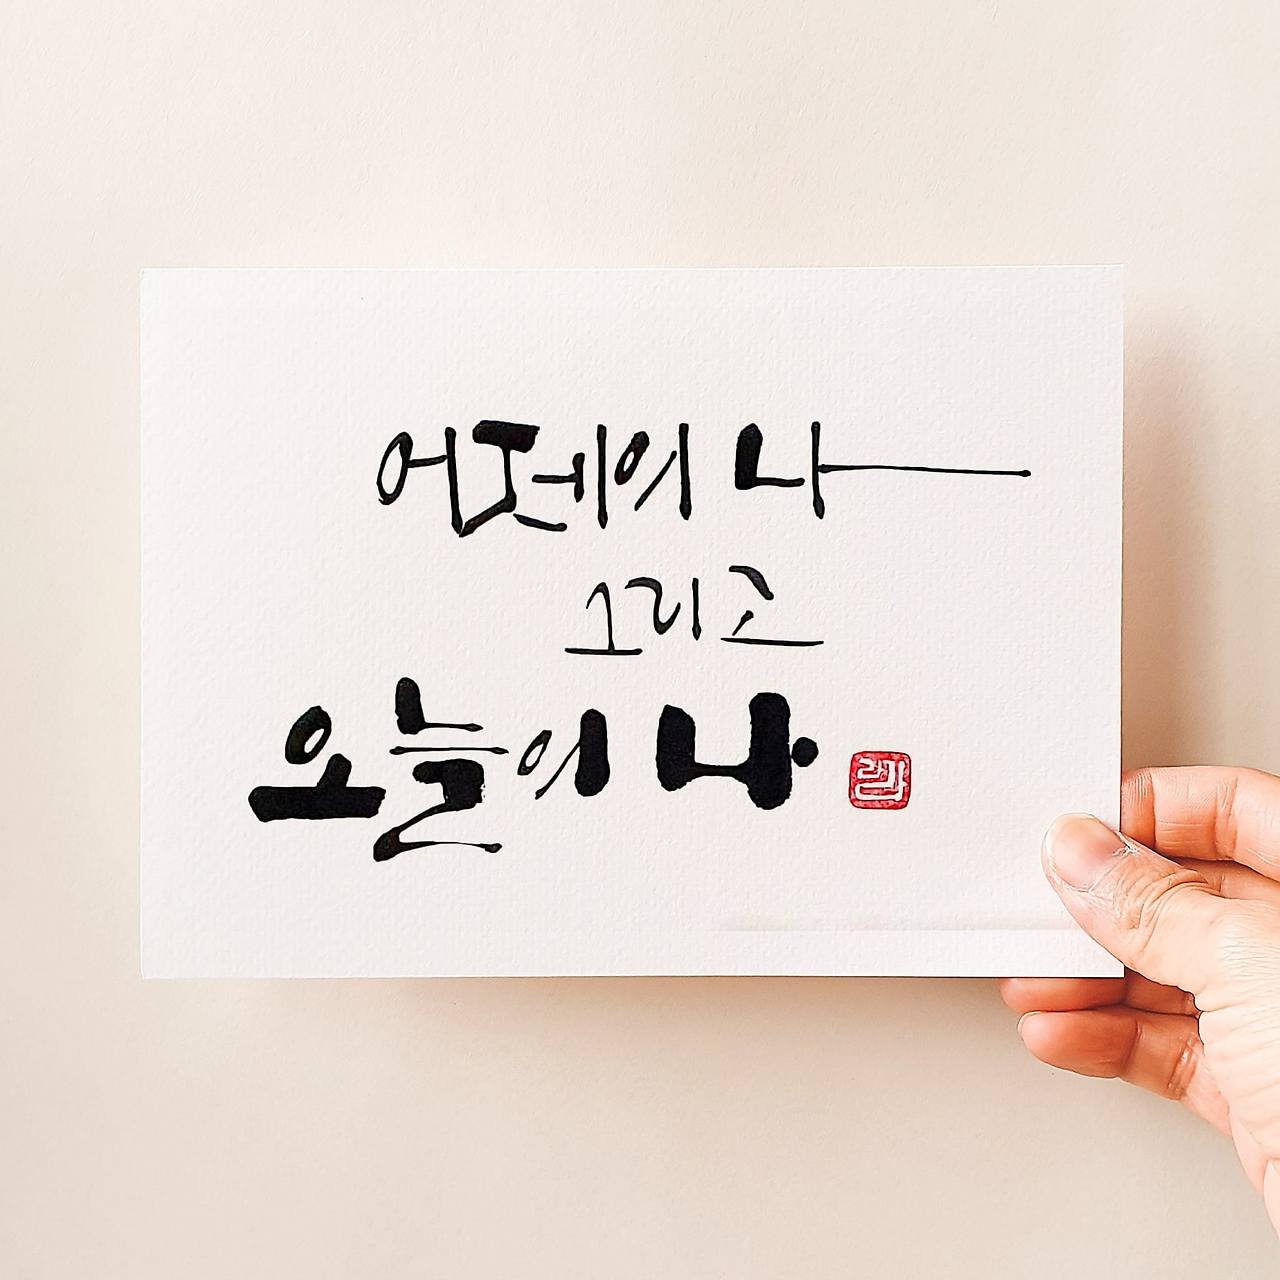 어제의 나
그리고
오늘의 나